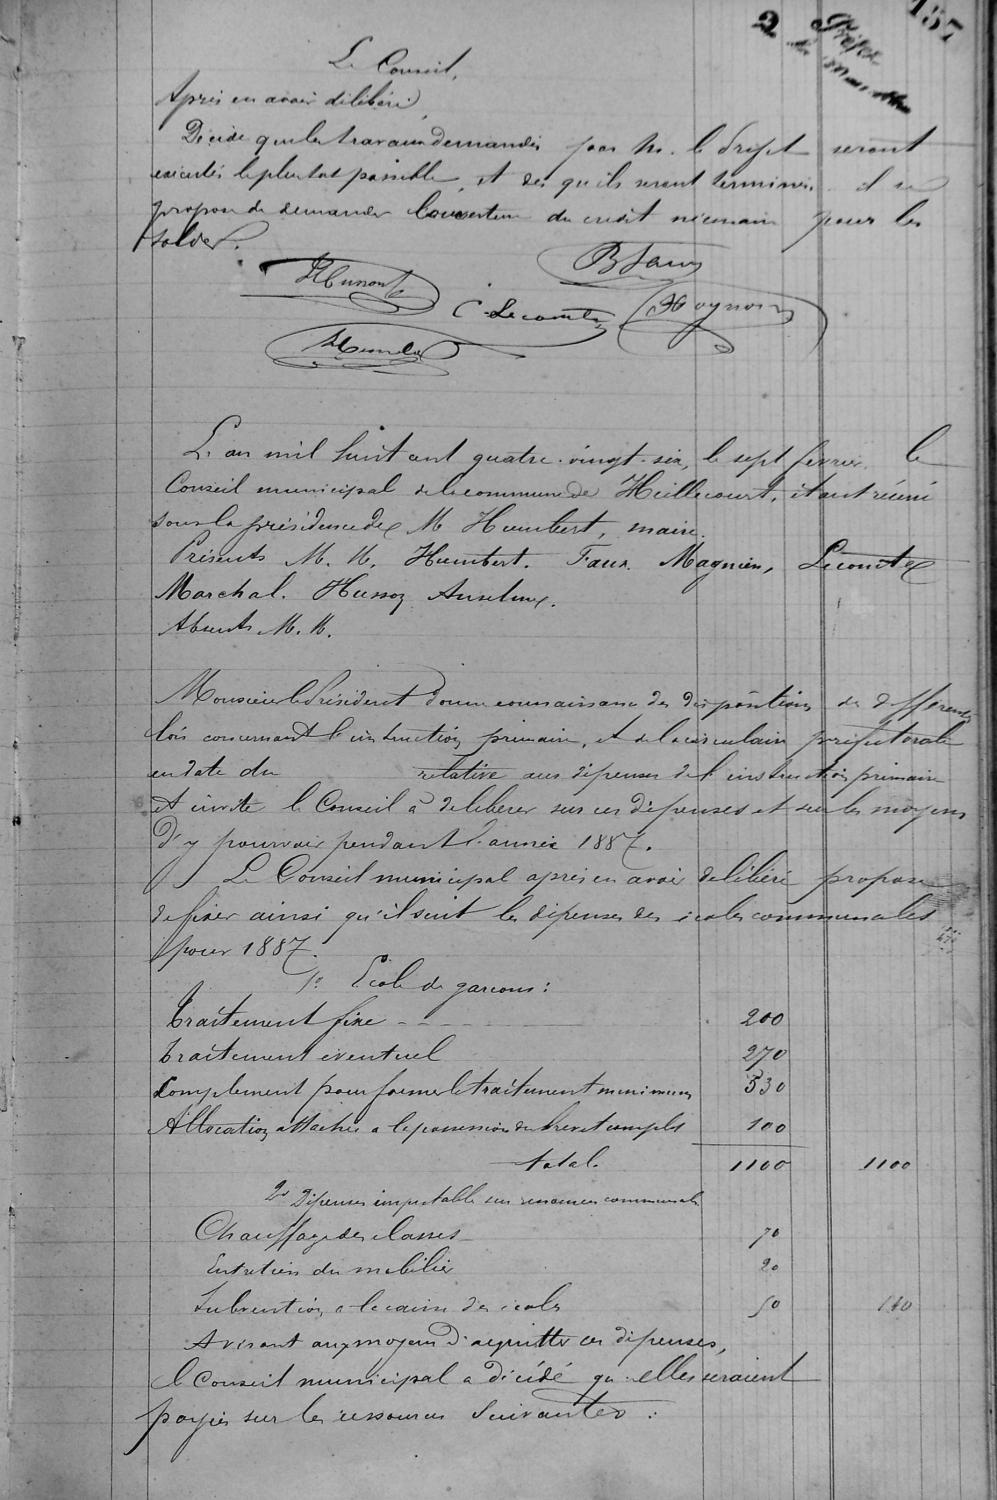 137
2 Préfet
Le Conseil,
Après en avoir délibéré,
Décide que les travaux demandés par M. le Préfet seront
exécutés le plus tot possible, et dès qu'ils seront terminés il se
propose de demander l'ouverture du crédit nécessaire pour les
solder.
B Faux
C. Lecomte
L'an mil huit cent quatre-vingt-six, le sept février, le
Conseil municipal de la commune de Heillecourt, étant réuni
sous la présidence de M Humbert, maire.
Présents M. M. Humbert. Faux. Magnien, Lecomte
Marchal. Husson Anselme.
Absents M. M.
Monsieur le Président donne connaissance des dispositions de différentes
lois concernant l'instruction primaire, et de la circulaire préfectorale
en date du relative aux dépenses de l'instruction primaire
et invite le Conseil à délibérer sur ces dépenses et sur les moyens
d'y pourvoir pendant l'année 1887.
Le Conseil municipal après en avoir délibéré propose
de fixer ainsi qu'il suit les dépenses des écoles communales
pour 1887.
1° Ecole de garcons:
Traitement fixe - - - - - 200
Traitement éventuel 270
Complément pour former le traitement minimum 530
Allocation attachée a la possession du brevet complet 100
total. 1100 1100
2° Dépenses imputable sur ressources communale
Chauffage des classes 70
Entretien du mobilier 20
Subvention a la caisse des écoles 50 140
Avisant aux moyens d'acquitter ces dépenses,
le Conseil municipal a décidé qu'elles seraient
payées sur les ressources suivantes :